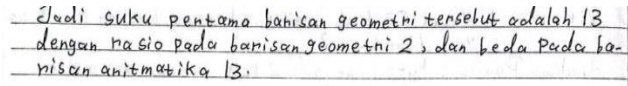 Jadi suku pentama banisan geometni tensebut adalah 13
dengan nasio pada banisan geometni 2, dan beda pada ba-
nisan anitmatika 13.